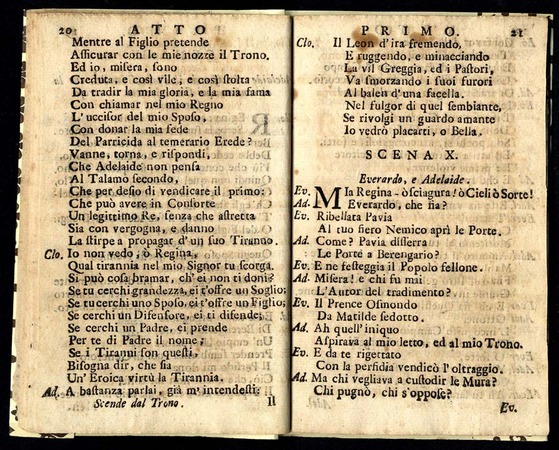 20 ATTO
Mentre al Figlio pretende
Assicurar con le mie nozze il Trono.
Ed io, misera, sono
Creduta, e così vile, e così stolta
Da tradir la mia gloria, e la mia fama
Con chiamar nel mio Regno
L'uccisor del mio Sposo,
Con donar la mia fede
Del Parricida al temerario Erede?
Vanne, torna, e rispondi,
Che Adelaide non pensa
Al Talamo secondo,
Che per desio di vendicare il primo:
Che può avere in Consorte
Un legittimo Re, senza che astretta
Sia con vergogna, e danno
La stirpe a propagar d'un suo Tiranno.
Clo. Io non vedo, ò Regina,
Qual tirannia nel mio Signor tu scorga.
Si può cosa bramar, ch'ei non ti doni?
Se tu cerchi grandezza, ei t'offre un Soglio;
Se tu cerchi uno Sposo, ei t'offre un Figlio;
Se cerchi un Difensore, ei ti difende;
Se cerchi un Padre, ei prende
Per te di Padre il nome;
Se i Tiranni son questi,
Bisogna dir, che sia
Un'Eroica virtù la Tirannia.
Ad. A bastanza parlai, già m'intendesti:
Scende dal Trono. Il
PRIMO. 21
Clo. Il Leon d'ira fremendo,
E ruggendo, e minacciando
La vil Greggia, ed i Pastori,
Va smorzando i suoi furori
Al balen d'una facella.
Nel fulgor di quel sembiante,
Se rivolgi un guardo amante
Io vedrò placarti, o Bella.
SCENA X.
Everardo, e Adelaide.
Ev. MIa Regina - ò sciagura! ò Cieli ò Sorte!
Ad. Everardo, che fia?
Ev. Ribellata Pavia
Al tuo fiero Nemico aprì le Porte.
Ad. Come? Pavia disserra
Le Porte a Berengario?
Ev. E ne festeggia il Popolo fellone.
Ad. Misera! e chi fu mai
L'Autor del tradimento?
Ev. Il Prence Osmondo
Da Matilde sedotto.
Ad. Ah quell'iniquo
Aspirava al mio letto, ed al mio Trono.
Ev. E da te rigettato
Con la perfidia vendicò l'oltraggio.
Ad. Ma chi vegliava a custodir le Mura?
Chi pugnò, chi s'oppose?
Ev.